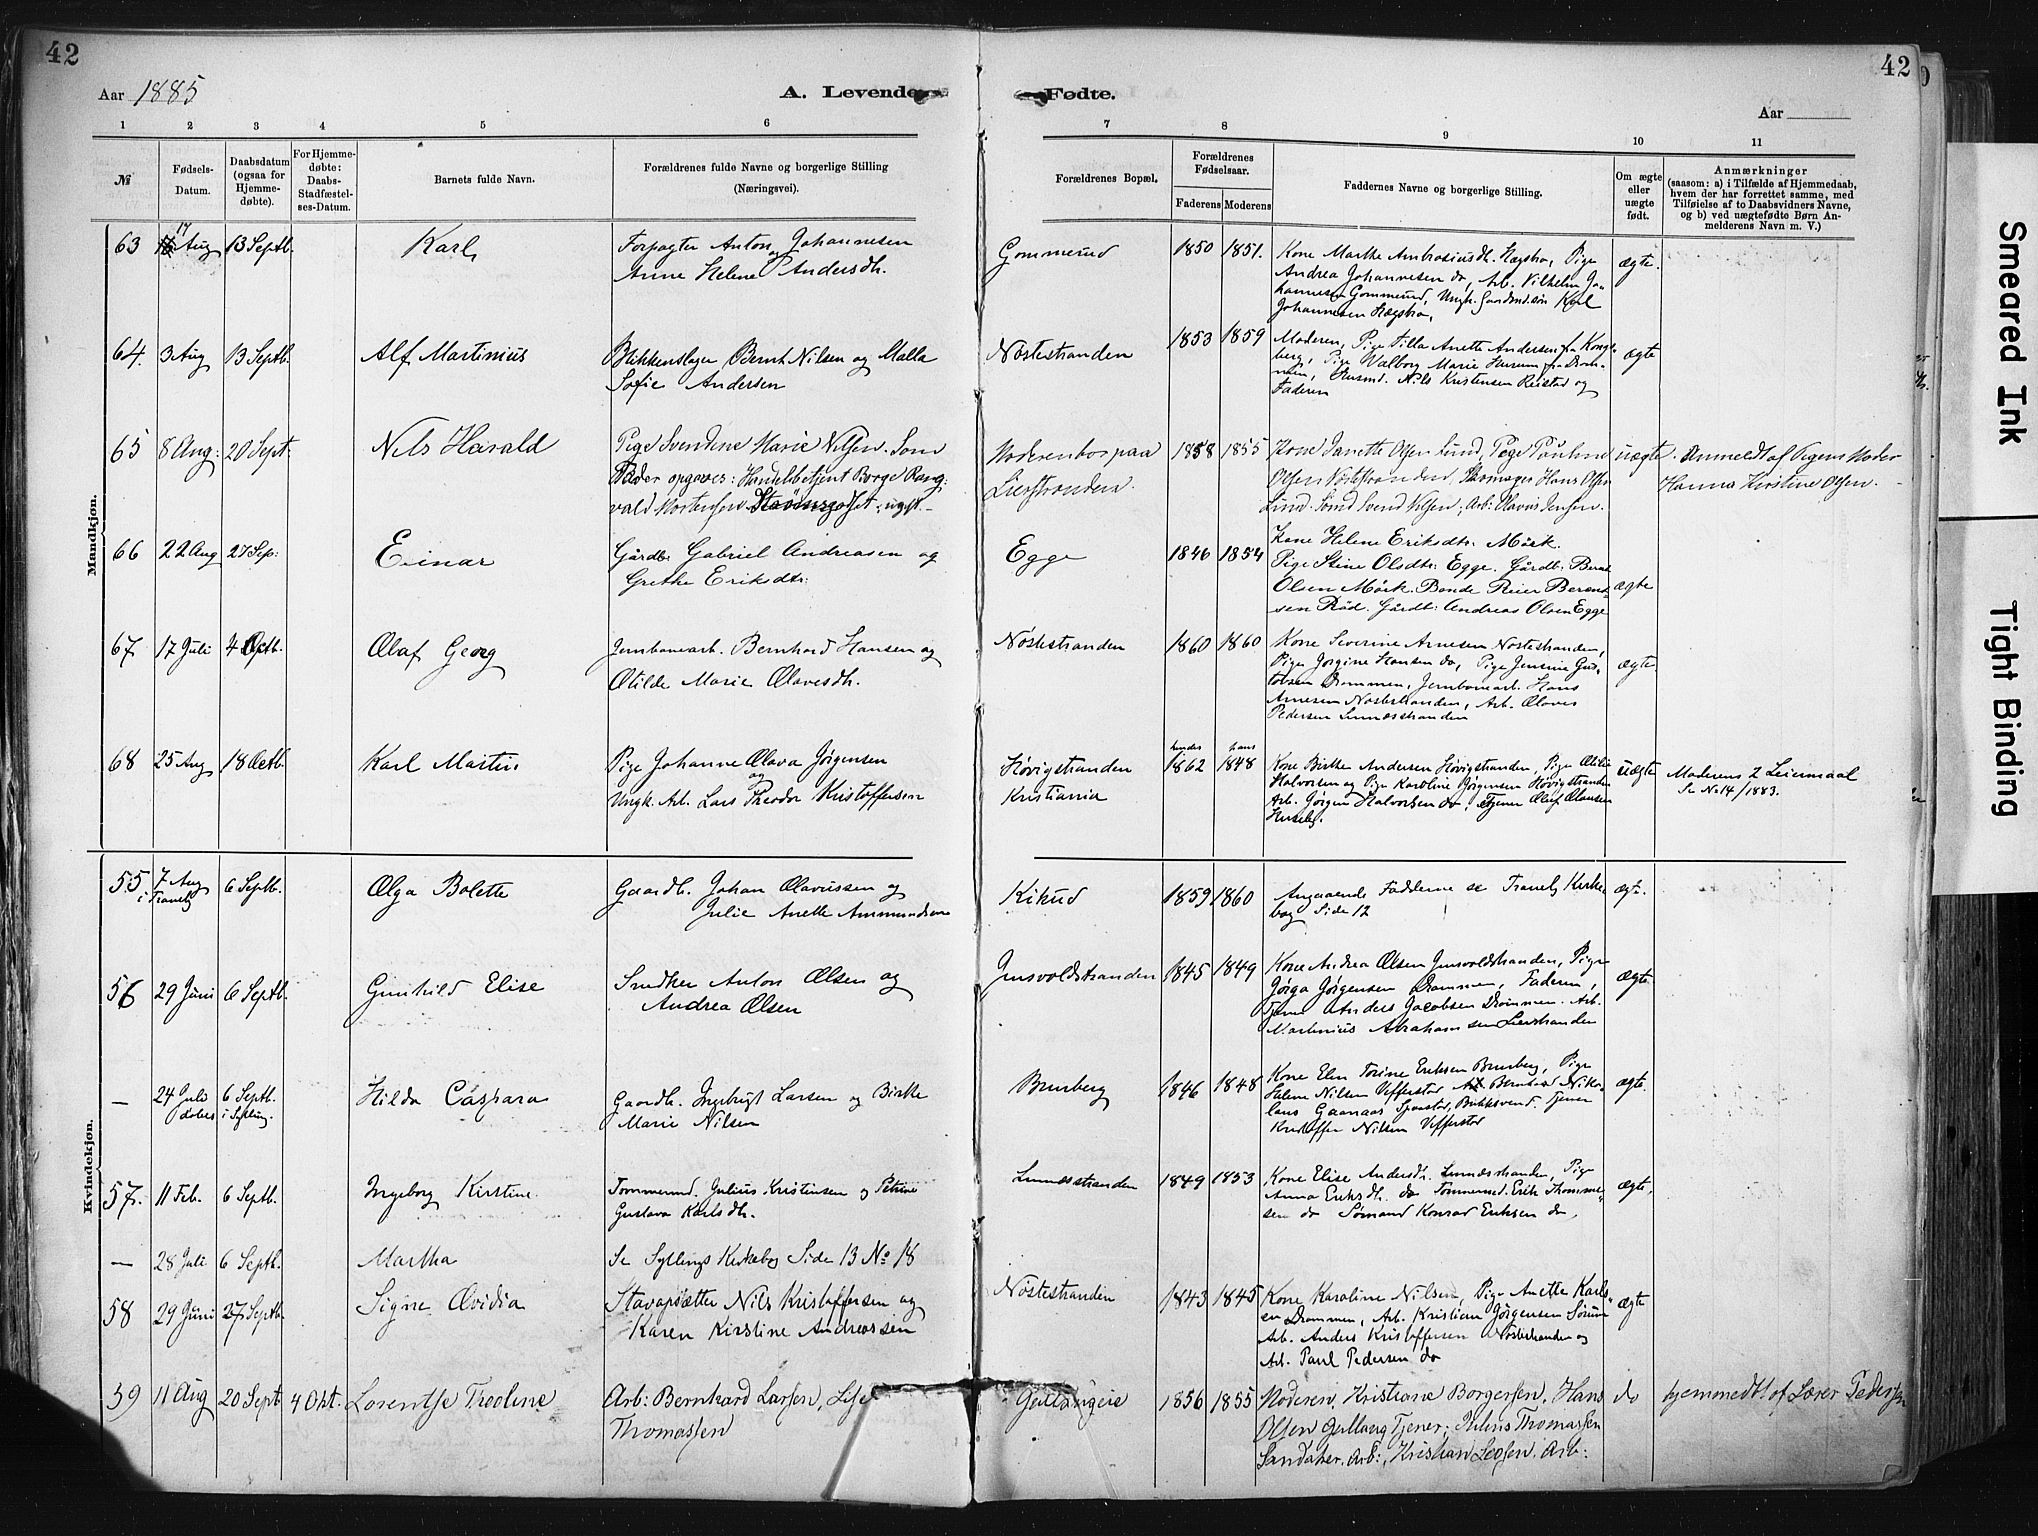 42
Aar 1885
A. Levende
1 2 3 4 5 6
№
Fødsels-Datum.
Daabsdatum (ogsaa for Hjemmedøbte).
For Hjemmedøbte: Daabs-Stadfæstelses-Datum.
Barnets fulde Navn.
Forældrenes fulde Navne og borgerlige Stilling (Næringsvei).
42
Fødte.
Aar
7 8 9 10 11
Forældrenes Bopæl.
Forældrenes Fødselsaar.
Faderens Moderens
Faddernes Navne og borgerlige Stilling.
Om ægte eller uægte født.
Anmærkninger
(saasom: a) i Tilfælde af Hjemmedaab,
hvem der har forrettet samme, med
Tilføielse af to Daabsvidners Navne,
og b) ved uægtefødte Børn Anmelderens
Navn m. V.)
Mandkjøn.
63 17 Aug 13 Septb. Karl
Forpagter Anton Johannesen
og Anne Helene Andersdh.
Gommerud 1850 1851.
Kone Marthe Ambrosiusdh. Hægstra, Pige
Andrea Johannesen do, Arb. Vilhelm Jo-
hannesen Gommerud, Ungk. Gaardmd.søn Karl
Johannesen Hægstra.
ægte.
64. 3 Aug 13 Septb. Alf Martinius
Blikkenslager Bernt Nilsen og Malla
Sofie Andersen
Nøstestranden 1853 1859
Moderen, Pige Tilla Anette Andersen fra Kongs-
berg, Pige Valborg Marie Husum fra Dram-
men, Husmd. Nils Kristensen Reistad og
Faderen
ægte
65 8 Aug: 20 Sept: Nils Harald
Pige Svendine Marie Nilsen. Som
Fader opgaves: Handelsbetjent Borge Rang-
vald Mortensen Strømsgodset, ugift
Moderen bor paa
Lierstranden.
1858 1855
Kone Janette Olsen Lund, Pige Pauline
Olsen Nøstestranden, Skomager Hans Olsen
Lund. Sømd Svend Nilsen, Arb: Olavus Jensen.
uægte.
Anmeldt af Pigens Moder
Hanna Kirstine Olsen.
66 22 Aug 27 Sep: Einar
Gårdbr: Gabriel Andreasen og
Grethe Eriksdtr:
Egge 1846 1854
Kone Helene Eriksdtr: Mörk.
Pige Stine Olsdtr: Egge. Gårdb: Bernt
Olsen Mörk. Bonde Reier Berent-
sen Röd. Gårdb: Andreas Olsen Egge
ægte
67. 17 Juli 4 Octb. Olaf Georg
Jernbanearb. Bernhard Hansen og
Otilde Marie Olavesdh.
Nøstestranden 1860 1860
Kone Severine Arnesen Nøstestranden,
Pige Jørgine Hansen do, Pige Jensine Gus-
tavsen Drammen, Jernbanearb. Hans
Arnesen Nøstestranden, Arb. Olaves
Pedersen Linnæsstranden
ægte.
68 25 Aug 18 Octb. Karl Martin
Pige Johanne Olava Jørgensen
og
Ungk. Arb. Lars Theodor Kristoffersen
Høvigstranden
Kristiania
hendes 1862 hans 1848
Kone Birthe Andersen Høvigstranden, Pige Otilie
Halvorsen og Pige Karoline Jørgensen Høvigstranden
Arb. Jørgen Halvorsen do, Tjener Oluf Olausen
Huseby.
uægte
Moderens 2 Leiermaal
Se No 14/1883.
Kvindekjøn.
55 7 Aug i Tranby 6 Septb. Olga Bolette
Gaardb. Johan Olavussen og
Julie Anette Ammundsen
Kikud 1859 1860
Angaaende Fadderne se Tranby Kirke-
bog Side 12
ægte.
56 29 Juni 6 Septb. Gunhild Elise
Snedker Anton Olsen og
Andrea Olsen
Gusvoldstranden 1845 1849
Kone Andrea Olsen Gusvoldstranden, Pige
Jørga Jørgensen Drammen, Faderen,
Tjener Anders Jacobsen Drammen. Arb.
Martinius Abrahamsen Lierstranden
ægte.
— 24 Juli 6 Septb. i Sylling. Hilda Caspara
Gaardb. Ingebrigt Larsen og Birthe
Marie Nilsen
Brurberg 1846 1848
Kone Elen Torine Eriksen Brurberg, Pige
Helene Nilsen Vefferstad Bernhard Niko-
lans Gaanaas Sjaastad, Butiksvend. Tjener
Kristoffer Nilsen Vefferstad
ægte.
57. 11 Feb. 6 Septb. Ingeborg Kirstine.
Tømmermd. Julius Kristensen og Petrine
Gustava Karlsdh.
Linnæsstranden 1849 1853
Kone Elise Andersdh. Linnæsstranden, Pige
Anna Eriksdh. do Tømmermd. Erik Thomme-
sen do Sømand Konrad Eriksen do,
ægte.
— 28 Juli 6 Septb. Martha
Se Syllings Kirkebog Side 13 No 18
58 29 Juni 27 Septb. Signe Ovidia
Stavopsætter Nils Kristoffersen og
Karen Kirstine Andreassen
Nøstestranden 1843 1845
Kone Karoline Nilsen, Pige Anette Karls-
en Drammen, Arb. Kristian Jørgensen Sørum
Arb. Anders Kristoffersen Nøstestranden og
Arb. Paul Pedersen do
ægte
59 11 Aug 20 Sept 4 Okt. Lorentse Theoline
Arb: Bernhard Larsen, Lise
Thomassen
Gullaugeie 1856 1855
Moderen, Kristiane Borgersen, Hans
Olsen Gullaug Tjener; Julius Thomassen
Sandaker. Arb:, Kristian Larsen. Arb:
do
hjemmedøbt af Lærer Pedersen
Smeared Ink
Tight Binding